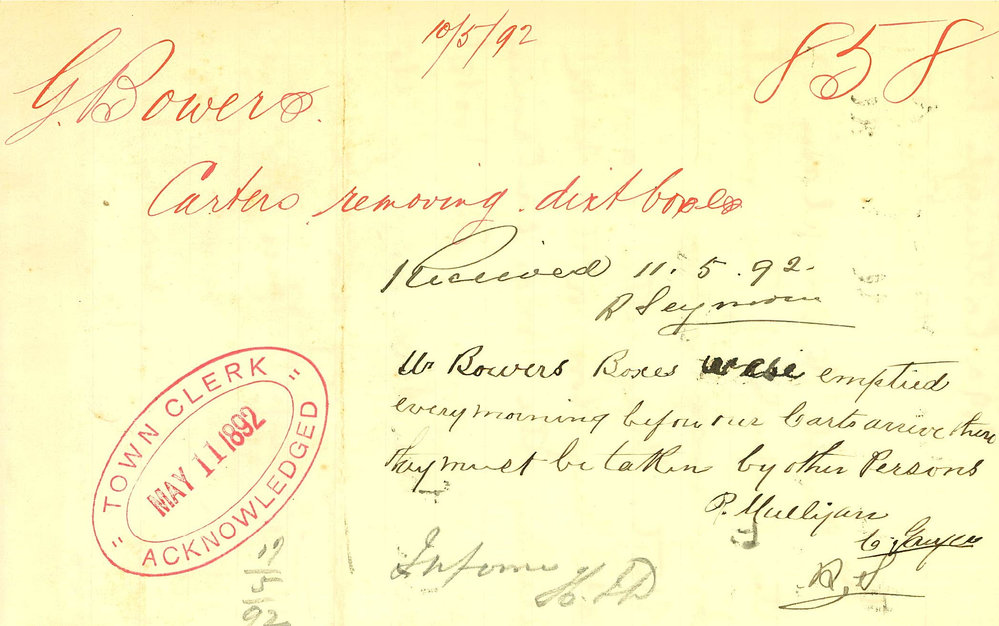 10/5/92
858
G. Bowers.
Carters removing dirt boxes
Received 11.5.92.
R Seymour
Mr Bowers Boxes were emptied
every morning before our Carts arrive there
they must be taken by other Persons
P. Mulligan
R.S
"TOWN CLERK"
MAY 11 1892
ACKNOWLEDGED
Inform